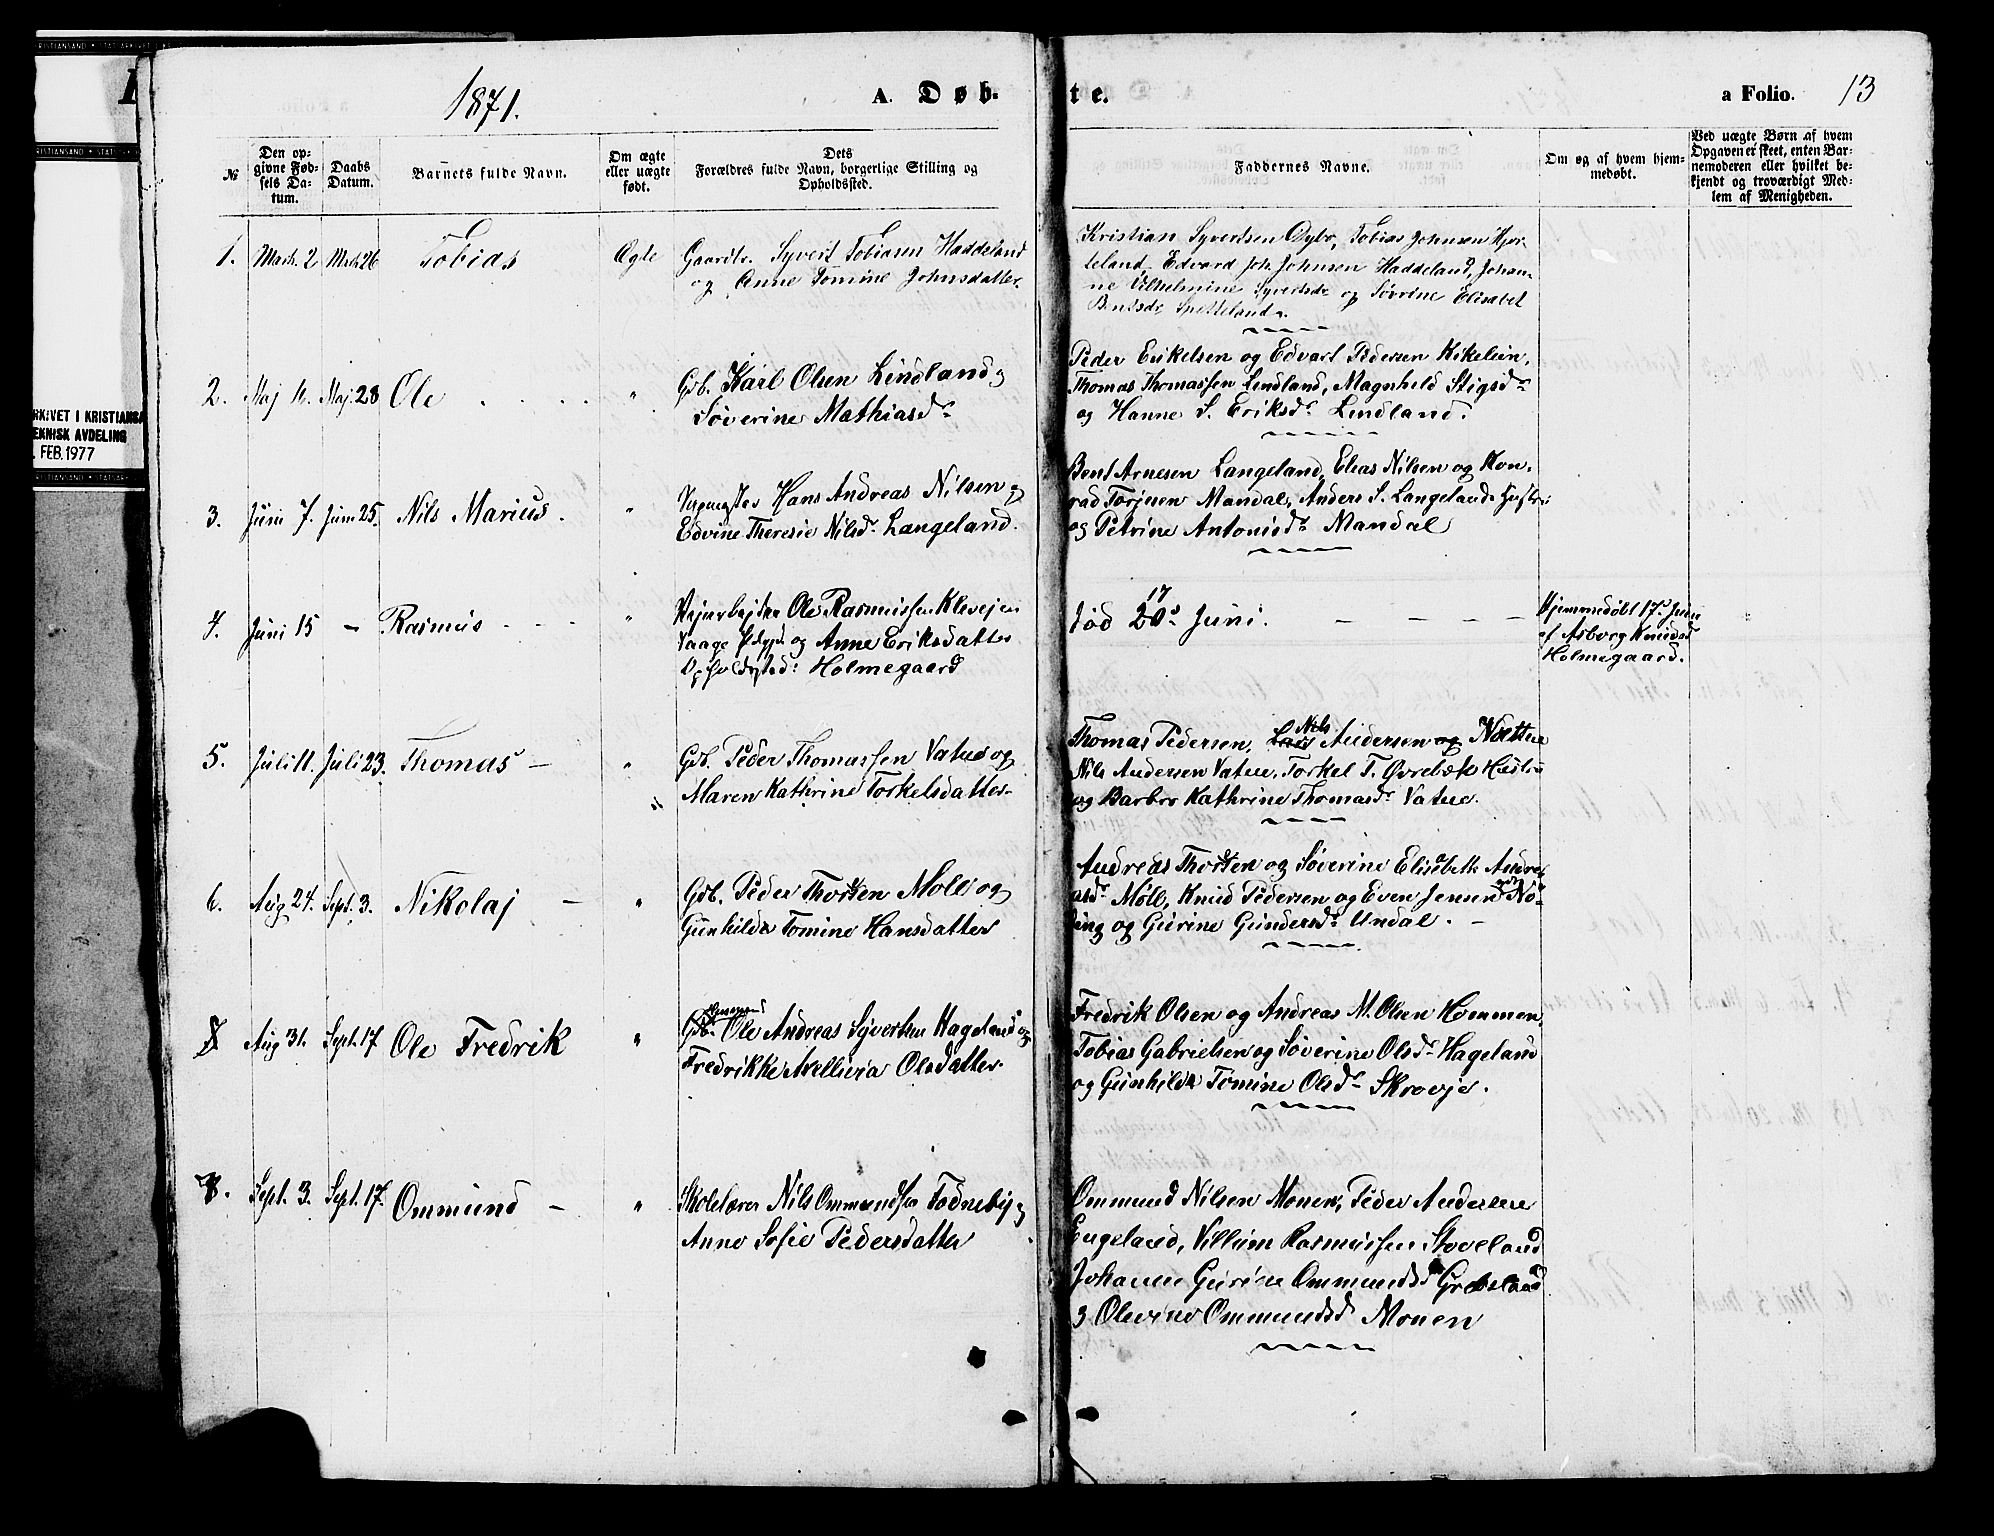 1871.
A. Døb-
te.
a Folio. 13
№
Den op-
givne Fød-
sels Da-
tum.
Daabs
Datum.
Barnets fulde Navn.
Om ægte
eller uægte
født.
Dets
Forældres fulde Navn, borgerlige Stilling og
Opholdssted.
Faddernes Navne.
Om og af hvem hjem-
medøbt.
Ved uægte Børn af hvem
Opgaven er skeet, enten Bar-
nemoderen eller hvilket be-
kjendt og troværdigt Med-
lem af Menigheden.
1. Marts 2 Marts 26 Tobias Ægte
Gaardbr. Syvert Tobiasen Haddeland
og Anne Tomine Johnsdatter
Kristian Syvertsen Dybo, Tobias Johnsen
Edvard Joh. Johnsen Haddeland, Johan-
ne Vilhelmine Syvertsdr og Søvrine Elisabet
Bentsdr
2. Maj 11. Maj 28 Ole . . . . "
Gdb. Karl Olsen Lindland og
Søverine Mathiasdr
Peder Eriksen og Edvart Pedersen
Thomas Thomassen Lindland, Magnhild Stigsdr
og Hanne S. Eriksdr Lindland.
3. Juni 7. Juni 25. Nils Marius. "
Hans Andreas Nilsen og
Edvine Theresie Nilsdr Langeland.
Bent Arnesen Langeland, Elias Nilsen og Kon-
rad Torjusen Mandal, Anders S. Langelands Hustru
og Petrine Antonisdr Mandal
4. Juni 15 – Rasmus - - - - "
Vejarbejder Ole Rasmussen Klevejen
Vaage og Anne Eriksdatter
Opholdssted: Holmegaard
17
død 20de Juni. – – – –
Hjemmedøbt 17de Juni
af Asborg Knudsd
Holmegaard.
5. Juli 11. Juli 23. Thomas – "
Gdb. Peder Thomassen Vatne og
Maren Kathrine Torkelsdatter
Nils
Thomas Pedersen, Lars Andersen og
Nils Andersen Vatne, Torkel T. Øvrebøk Hustru
og Barbro Kathrine Thomasdr Vatne.
6. Aug 24. Sept. 3. Nikolaj – "
Gdb. Peder Thorsen Møll og
Gunhilde Tomine Hansdatter
Andreas Thorsen og Søverine Elisabeth Andre-
asdr Møll, Knud Pedersen og Even Jensen Nø-
ding og Gurine Gundersdr Undal. –
Aug 31. Sept. 17 Ole Fredrik "
Gdb. Ole Andreas Syvertsen Hageland og
Fredrikke Olsdatter
Fredrik Olsen og Andreas M. Olsen Homme,
Tobias Gabrielsen og Søverine Olsdr Hageland
og Gunhilde Tomine Olsdr Skrovje.
8. Sept. 3. Sept. 17. Ommund – "
Skolelærer Nils Ommundsen Fodneby og
Anne Sofie Pedersdatter
Ommund Nilsen Monen, Peder Andersen
Engeland, Villum Rasmussen Stoveland
Johanne Gurine Ommundsd
og Olevine Ommundsd Monen
ARKIVET I KRISTIANSA
EKNISK AVDELING
FEB. 1977